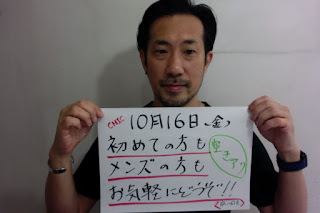 CHIC 10月16日(金)
初めての方も
空きアリ
メンズの方も
お気軽にどうぞ!!